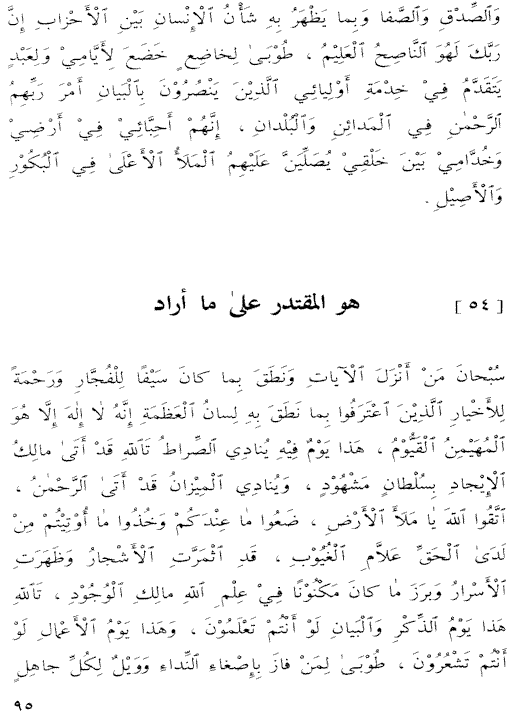 وَٱلصِّدْقِ وَٱلصَّفا وَبِما يَظْهَرُ بِهِ شَأْنُ ٱلْإِنْسانِ بَيْنَ ٱلْأَحْزابِ إِنَّ
رَبَّكَ لَهُوَ ٱلنَّاصِحُ ٱلْعَلِيْمُ ، طُوْبَىٰ لِخاضِعٍ خَضَعَ لِأَيَّامِيْ وَلِعَبْدٍ
يَتَقَدَّمُ فِيْ خِدْمَةِ أَوْلِيائِي ٱلَّذِيْنَ يَنْصُرُوْنَ بِٱلْبَيانِ أَمْرَ رَبِّهِمُ
ٱلرَّحْمٰنِ فِي ٱلْمَدائِنِ وَٱلْبُلْدانِ ، إِنَّهُمْ أَحِبَّائِيْ فِيْ أَرْضِيْ
وَخُدَّامِيْ بَيْنَ خَلْقِيْ يُصَلِّيَنَّ عَلَيْهِمُ ٱلْمَلَأُ ٱلْأَعْلَىٰ فِي ٱلْبُكُوْرِ
وَٱلْأَصِيْلِ .
[ ٥٤ ] هو المقتدر علىٰ ما أراد
سُبْحانَ مَنْ أَنْزَلَ ٱلْآياتِ وَنَطَقَ بِما كانَ سَيْفًا لِلْفُجَّارِ وَرَحْمَةً
لِلْأَخْيارِ ٱلَّذِيْنَ ٱعْتَرَفُوا بِما نَطَقَ بِهِ لِسانُ ٱلْعَظَمَةِ إِنَّهُ لا إِلٰهَ إِلَّا هُوَ
ٱلْمُهَيْمِنُ ٱلْقَيُّوْمُ ، هَذا يَوْمٌ فِيْهِ يُنادِي ٱلصِّراطُ تَٱللهِ قَدْ أَتَىٰ مالِكُ
ٱلْإِيْجادِ بِسُلْطانٍ مَشْهُوْدٍ ، وَيُنادِي ٱلْمِيْزانُ قَدْ أَتَىٰ ٱلرَّحْمٰنُ ،
ٱتَّقُوا ٱللهَ يا مَلَأَ ٱلْأَرْضِ ، ضَعُوا ما عِنْدَكُمْ وَخُذُوا ما أُوْتِيْتُمْ مِنْ
لَدَىٰ ٱلْحَقِّ عَلَّامِ ٱلْغُيُوْبِ ، قَدِ ٱثْمَرَّتِ ٱلْأَشْجارُ وَظَهَرَتِ
ٱلْأَسْرارُ وَبَرَزَ ما كانَ مَكْنُوْنًا فِيْ عِلْمِ ٱللهِ مالِكِ ٱلْوُجُوْدِ ، تَٱللهِ
هَذا يَوْمُ ٱلذِّكْرِ وَٱلْبَيانِ لَوْ أَنْتُمْ تَعْلَمُوْنَ ، وَهَذا يَوْمُ ٱلْأَعْمالِ لَوْ
أَنْتُمْ تَشْعُرُوْنَ ، طُوْبَىٰ لِمَنْ فازَ بِإِصْغاءِ ٱلنِّداءِ وَوَيْلٌ لِكُلِّ جاهِلٍ
٩٥